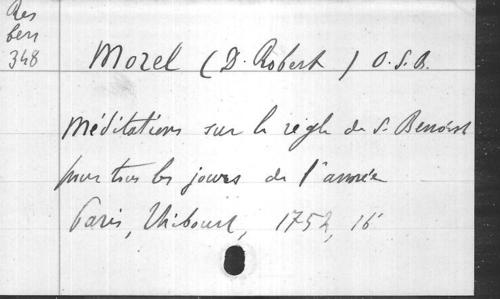 Res
ben
348
Morel (D. Robert) O.S.B.
Méditations sur la règle de S. Benoist
pour tous les jours de l'année
Paris, Thiboust, 1752, 16